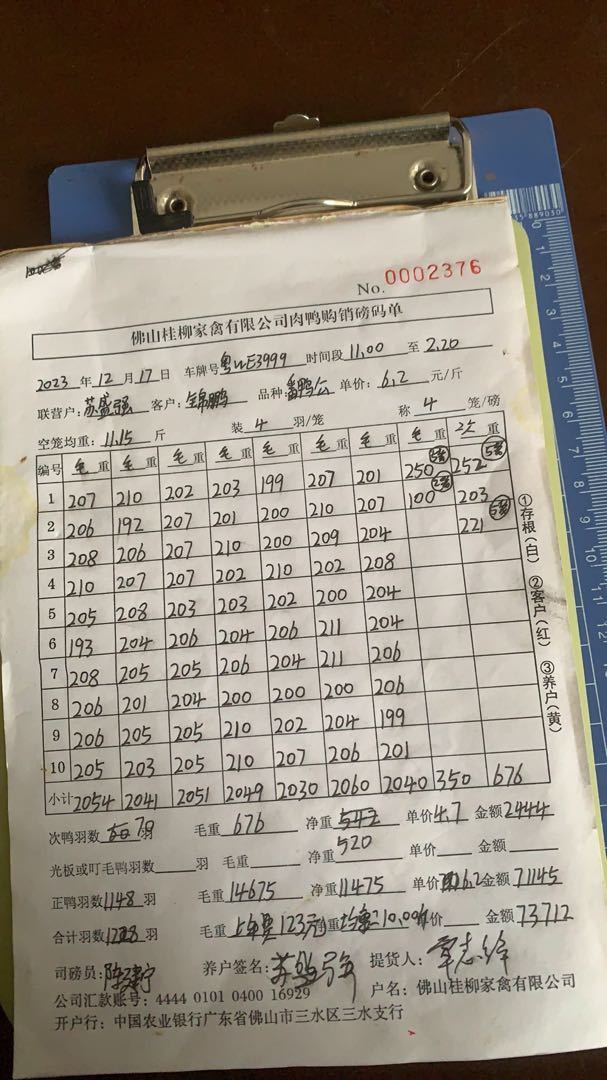 No. 0002376
佛山桂柳家禽有限公司肉鸭购销磅码单
2023 年 12 月 17 日 车牌号 粤WE3999 时间段 11.00 至 2.20
联营户: 苏盛强 客户: 锦鹏 品种: 番鸭公 单价: 6.2 元/斤
空笼均重: 11.15 斤 装 4 羽/笼 称 4 笼/磅
编号 毛重 毛重 毛重 毛重 毛重 毛重 毛重 毛重 次重
1 207 210 202 203 199 207 201 250 5笼 252 5笼
2 206 192 207 201 200 210 207 100 2笼 203
3 208 206 207 210 200 209 204 221 5笼
4 210 207 207 202 210 202 208
5 205 208 203 203 202 200 204
6 193 204 206 204 206 211 204
7 208 205 205 206 204 211 206
8 206 201 204 200 200 200 206
9 206 205 205 210 202 204 199
10 205 203 205 210 207 206 201
小计 2054 2041 2051 2049 2030 2060 2040 350 676
次鸭羽数 70 羽 毛重 676 净重 520 单价 4.7 金额 2444
光板或叮毛鸭羽数 羽 毛重 净重 单价 金额
正鸭羽数 1148 羽 毛重 14675 净重 11475 单价 6.2 金额 71145
合计羽数 1218 羽 毛重 上车费123元 净重 均重=10.00 单价 金额 73712
司磅员: 养户签名: 苏盛强 提货人: 覃志
公司汇款账号: 4444 0101 0400 16929 户名: 佛山桂柳家禽有限公司
开户行: 中国农业银行广东省佛山市三水区三水支行
①存根(白) ②客户(红) ③养户(黄)
889030
0 1 2 3 4 5 6 7 8 9 10